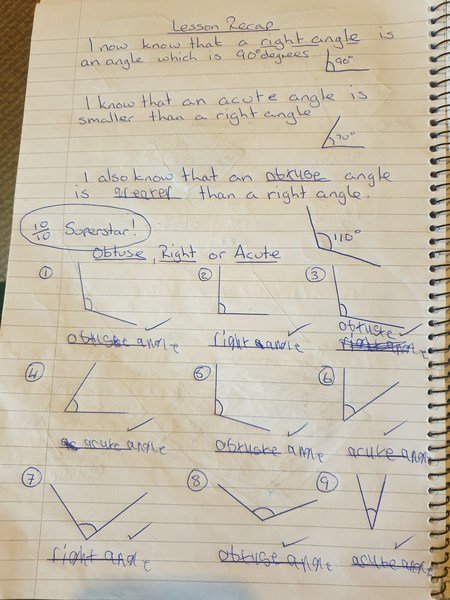 Lesson Recap
I now know that a right angle is
an angle which is 90° degrees
90°
I know that an acute angle is
smaller than a right angle
70°
I also know that an obtuse angle
is greater than a right angle.
10/10 Superstar!
110°
Obtuse, Right or Acute
① ② ③
obtuste angle right angle obtuste
right angle
④ ⑤ ⑥
acute angle obtuste angle acute angle
⑦ ⑧ ⑨
right angle obtuse angle acute angle